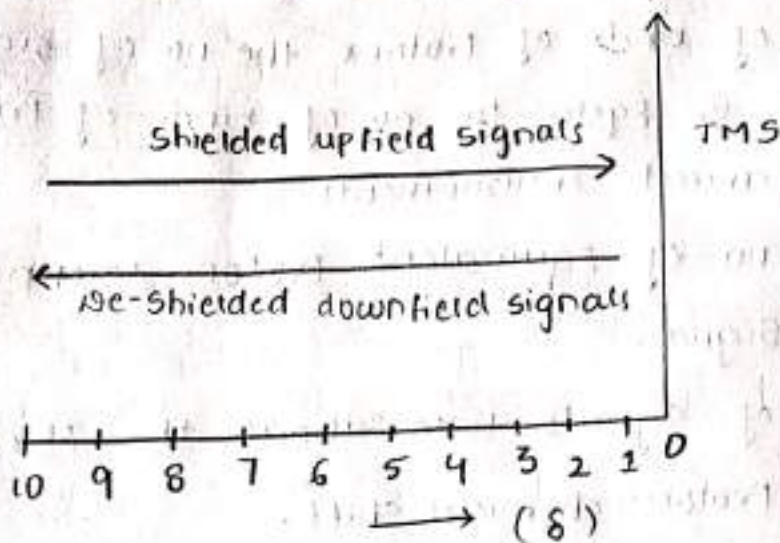 Shielded upfield signals TMS
De-Shielded downfield signals
10 9 8 7 6 5 4 3 2 1 0
(δ)